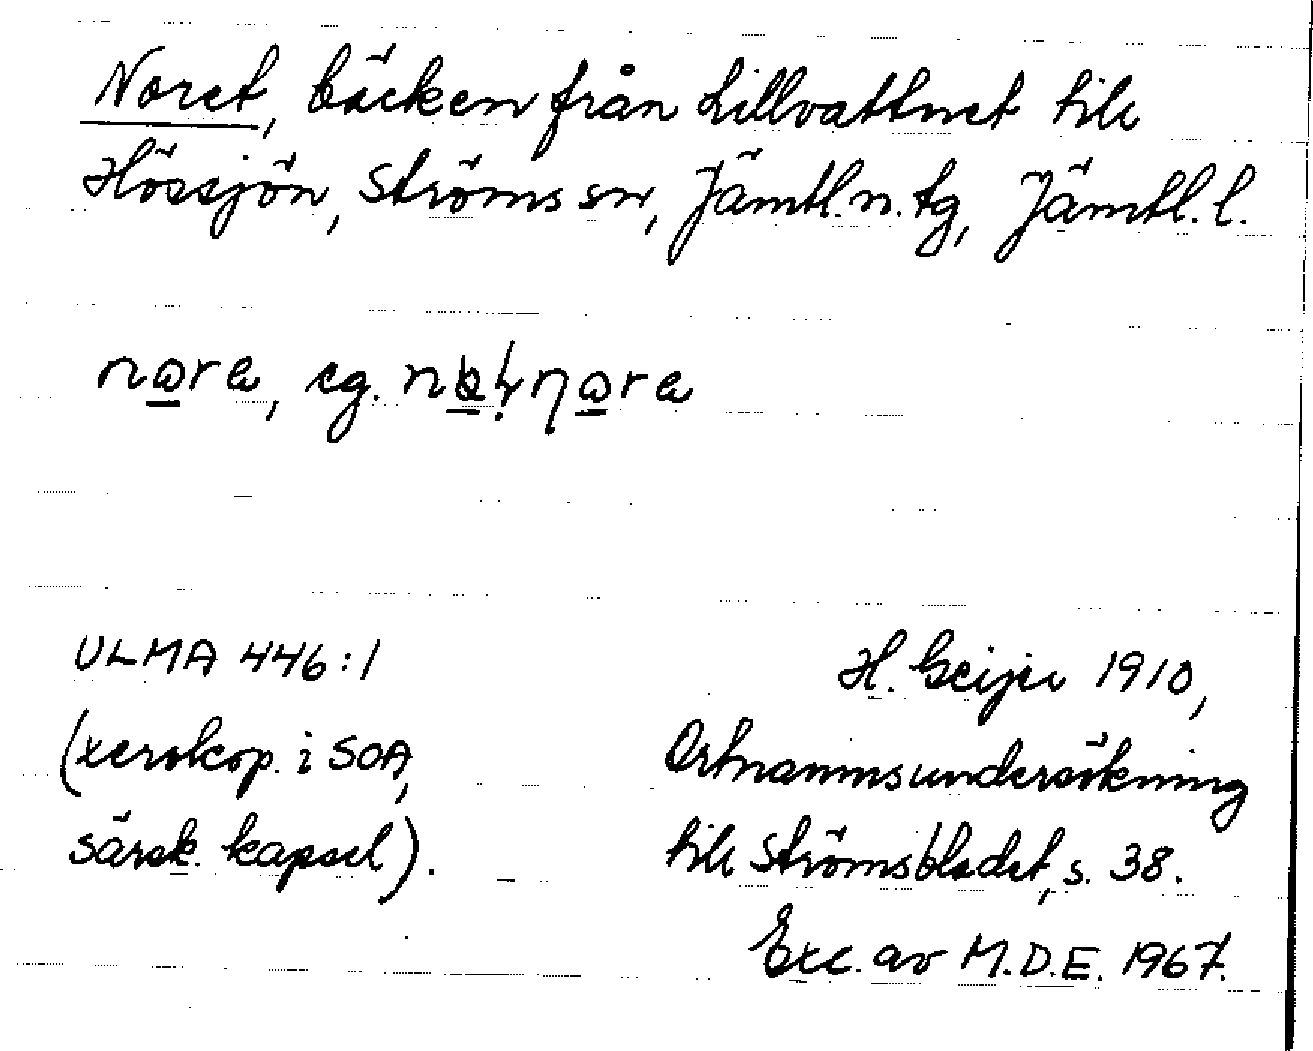 Noret, bäcken från Lillvattnet till
Hössjön, Ströms sn, Jämtl. n. tg, Jämtl. l.
nɷra, eg.
ULMA 446:1
(xerokop. i SOA,
särsk. kapsel).
H. Geijer 1910,
Ortnamnsundersökning
till Strömsbladet, s. 38.
Exc. av M.D.E. 1967.